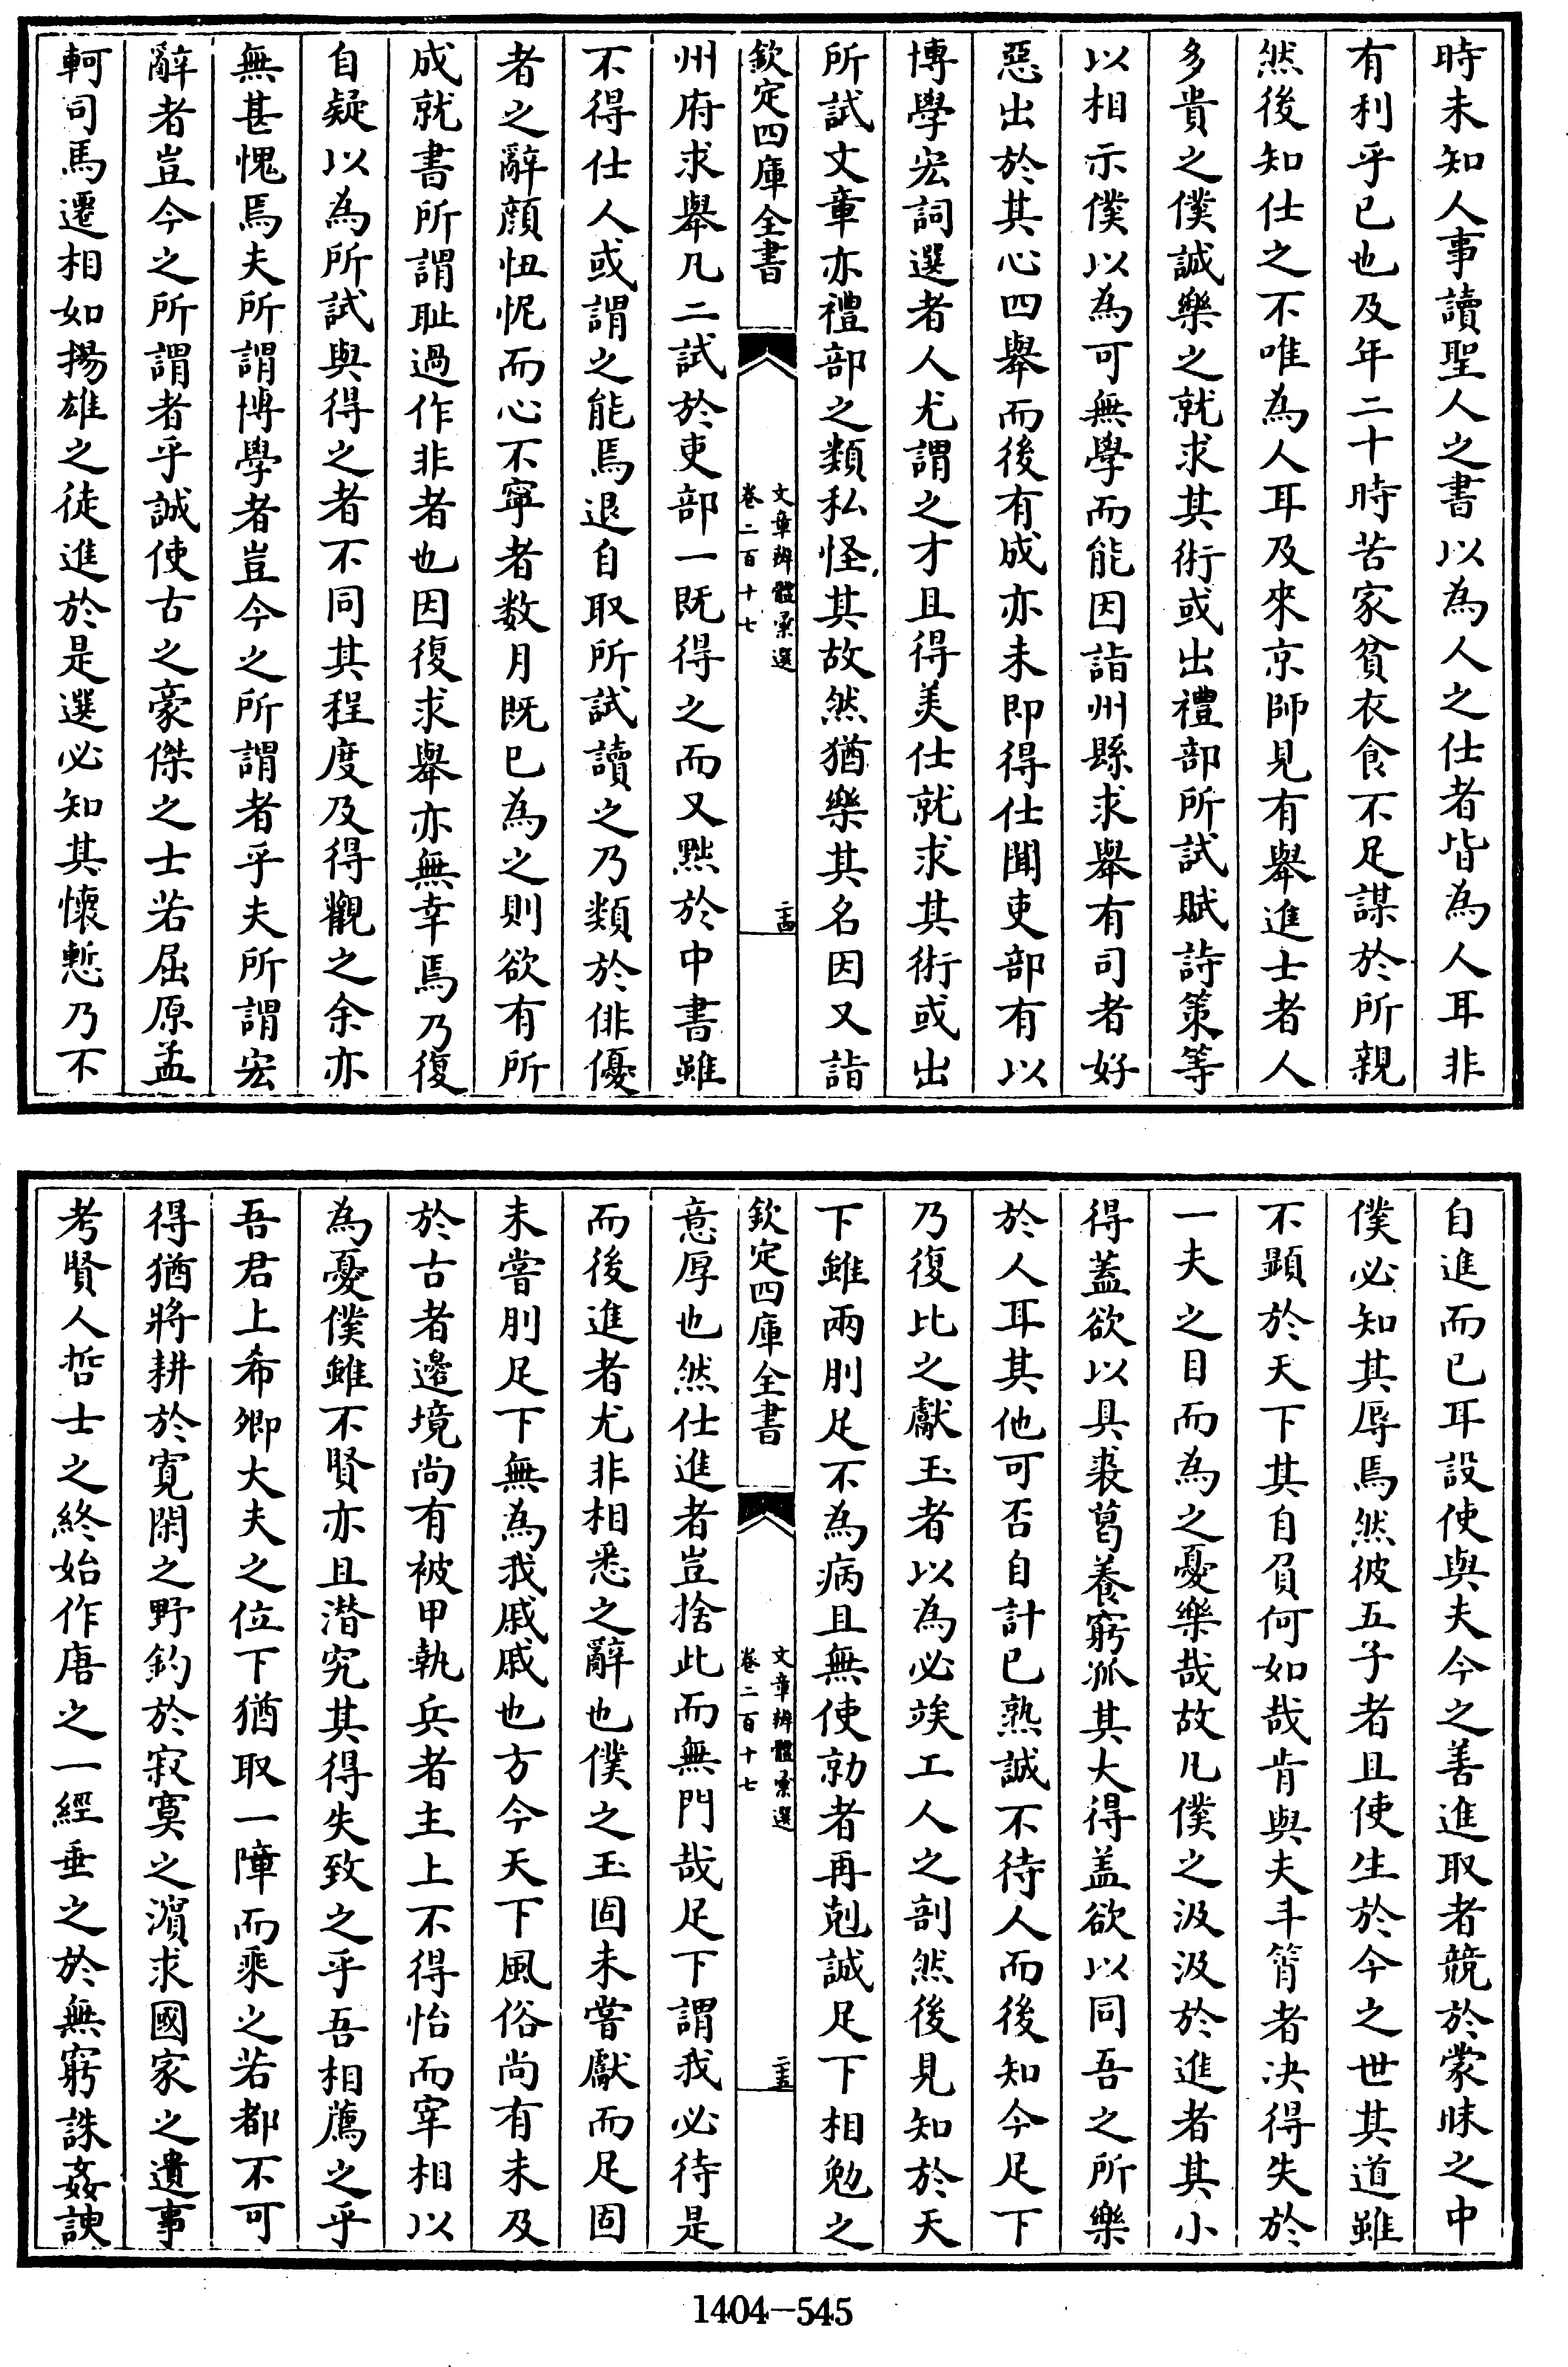 時未知人事讀聖人之書以為人之仕者皆為人耳非
有利乎已也及年二十時苦家貧衣食不足謀於所親
然後知仕之不唯為人耳及來京師見有舉進士者人
多貴之僕誠樂之就求其術或出禮部所試賦詩策等
以相示僕以為可無學而能因詣州縣求舉有司者好
惡出於其心四舉而後有成亦未即得仕聞吏部有以
博學宏詞選者人尤謂之才且得美仕就求其術或出
所試文章亦禮部之類私怪其故然猶樂其名因又詣
欽定四庫全書
文章辨體彙選
卷二百十七
二十四
州府求舉凡二試於吏部一既得之而又黜於中書雖
不得仕人或謂之能焉退自取所試讀之乃類於俳優
者之辭顔忸怩而心不寧者数月既已為之則欲有所
成就書所謂耻過作非者也因復求舉亦無幸焉乃復
自疑以為所試與得之者不同其程度及得觀之余亦
無甚愧焉夫所謂博學者豈今之所謂者乎夫所謂宏
辭者豈今之所謂者乎誠使古之豪傑之士若屈原孟
軻司馬遷相如揚雄之徒進於是選必知其懷慙乃不
自進而已耳設使與夫今之善進取者競於蒙昧之中
僕必知其辱焉然彼五子者且使生於今之世其道雖
不顯於天下其自負何如哉肯與夫斗筲者决得失於
一夫之目而為之憂樂哉故凡僕之汲汲於進者其小
得蓋欲以具裘葛養窮孤其大得盖欲以同吾之所樂
於人耳其他可否自計已熟誠不待人而後知今足下
乃復比之獻玉者以為必竢工人之剖然後見知於天
下雖兩刖足不為病且無使勍者再剋誠足下相勉之
欽定四庫全書
文章辨體彙選
卷二百十七
二十五
意厚也然仕進者豈捨此而無門哉足下謂我必待是
而後進者尤非相悉之辭也僕之玉固未嘗獻而足固
未嘗刖足下無為我戚戚也方今天下風俗尚有未及
於古者邉境尚有被甲執兵者主上不得怡而宰相以
為憂僕雖不賢亦且潛究其得失致之乎吾相薦之乎
吾君上希卿大夫之位下猶取一障而乘之若都不可
得猶將耕於寛閑之野釣於寂寞之濵求國家之遺事
考賢人哲士之終始作唐之一經垂之於無窮誅姦諛
1404-545